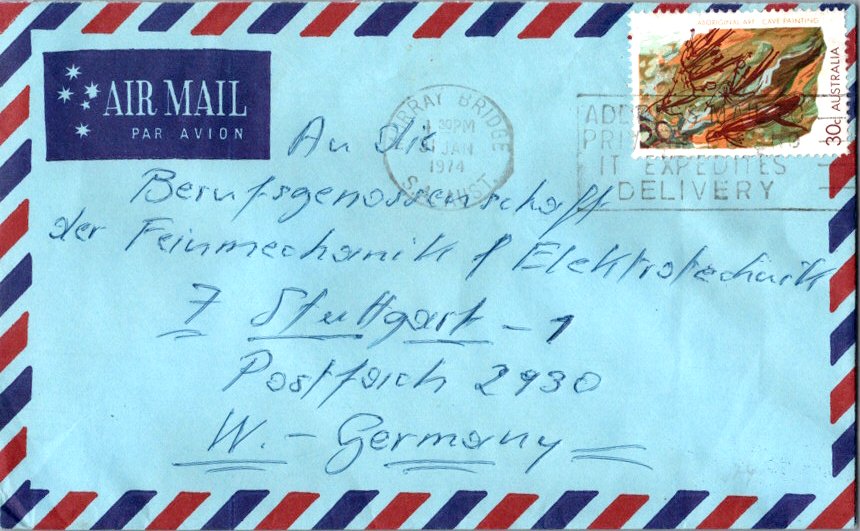 AIR MAIL
PAR AVION
ABORIGINAL ART - CAVE PAINTING
30c AUSTRALIA
MURRAY BRIDGE
30PM
JAN
1974
S. AUST
IT EXPEDITES
DELIVERY
An die
Berufsgenossenschaft
der Feinmechanik & Elektrotechnik
7 Stuttgart - 1
Postfach 2930
W. - Germany